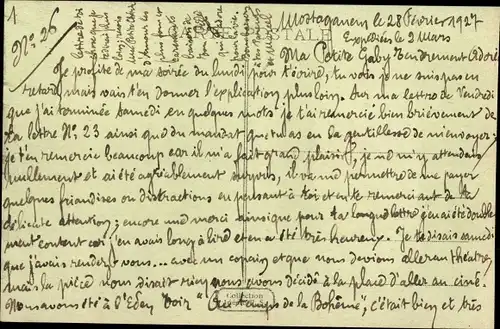 1
No. 26
Mostaganem le 28 Février 1927
Expédiée le 2 Mars
TALE
Ma Petite Gaby Tendrement Adorée
Je profite de ma soirée du lundi pour t'écrire, tu vois je ne suis pas en
retard, mais vais t'en donner l'explication plus loin. Sur ma lettre de Vendredi
que j'ai terminée samedi en quelques mots, je t'ai remercié bien brièvement de
ta lettre No. 23 ainsi que du mandat que tu as eu la gentillesse de m'envoyer;
je t'en remercie beaucoup car il m'a fait grand plaisir, je ne m'y attendais
nullement et ai été agréablement surpris, il va me permettre de me payer
quelques friandises ou distractions en pensant à toi et en te remerciant de ta
délicate attention; encore une merci ainsi que pour ta longue lettre j'en ai été double
ment content car j'en avais long à lire et en ai été très heureux. Je te disais samedi
que j'avais rendez vous... avec un copain et que nous devions aller au théâtre,
mais la pièce nous disait rien, nous avons décidé à la place d'aller au ciné.
Nous avons été à l'Eden voir "Au temps de la Bohême", c'était bien et très
Collection